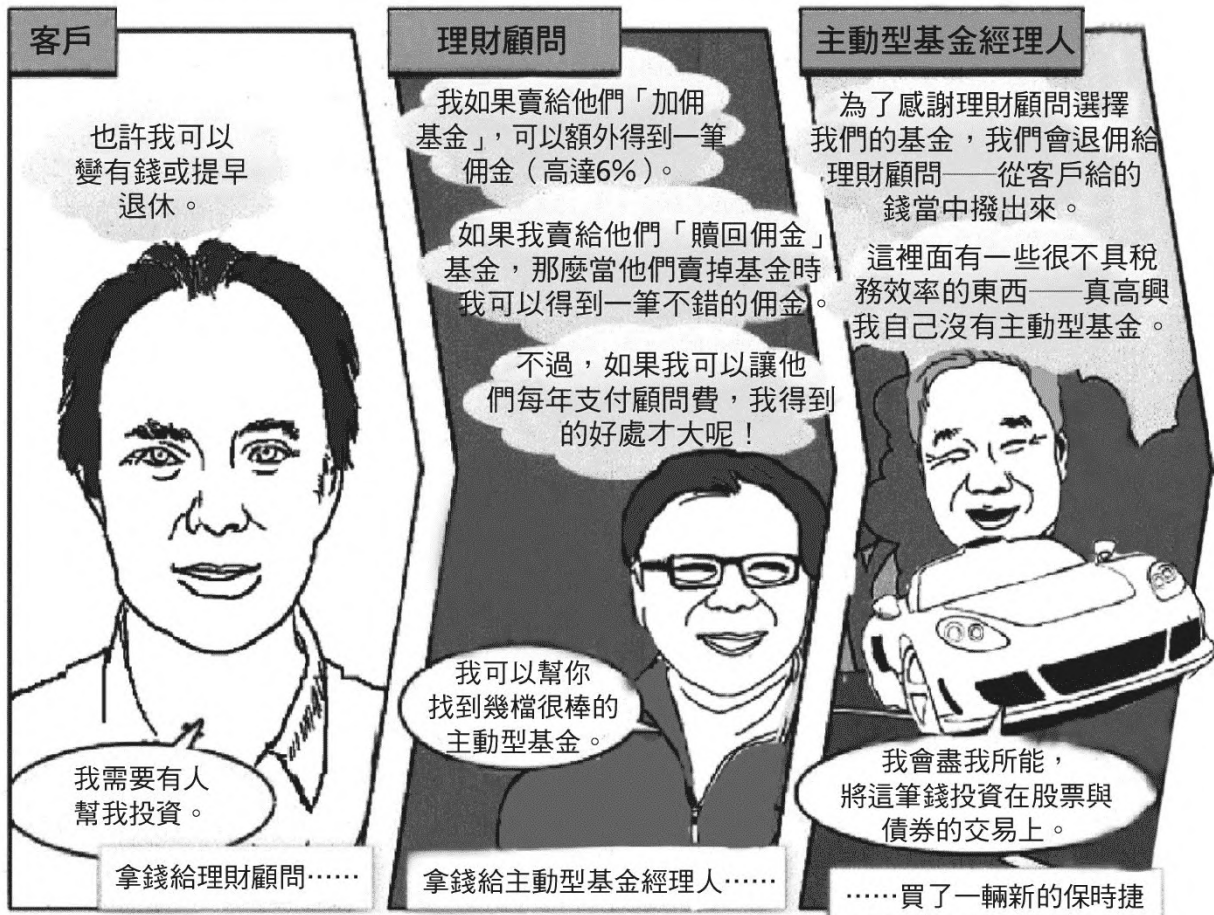 客戶
也許我可以
變有錢或提早
退休。
我需要有人
幫我投資。
拿錢給理財顧問⋯⋯
理財顧問
我如果賣給他們「加佣
基金」，可以額外得到一筆
佣金（高達6%）。
如果我賣給他們「贖回佣金」
基金，那麼當他們賣掉基金時，
我可以得到一筆不錯的佣金。
不過，如果我可以讓他
們每年支付顧問費，我得到
的好處才大呢！
我可以幫你
找到幾檔很棒的
主動型基金。
拿錢給主動型基金經理人⋯⋯
主動型基金經理人
為了感謝理財顧問選擇
我們的基金，我們會退佣給
理財顧問——從客戶給的
錢當中撥出來。
這裡面有一些很不具稅
務效率的東西——真高興
我自己沒有主動型基金。
我會盡我所能，
將這筆錢投資在股票與
債券的交易上。
⋯⋯買了一輛新的保時捷